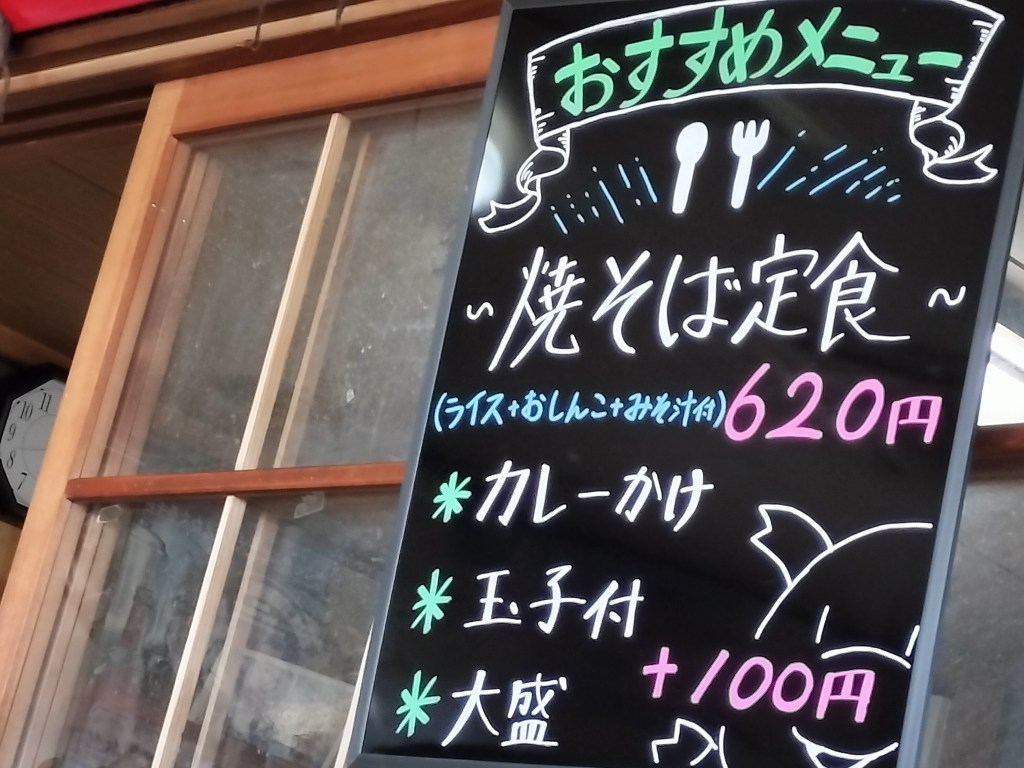 おすすめメニュー
~焼そば定食~
(ライス+おしんこ+みそ汁付)620円
*カレーかけ
*玉子付
+100円
*大盛
10 11
9
8
7